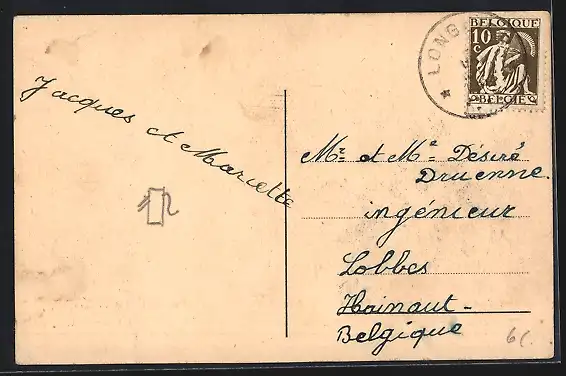 Jacques et Mariette
LONG
BELGIQUE
10
c
BELGIË
Mr et Me Désiré
Druenne.
ingénieur
Lobbes
Hainaut -
Belgique